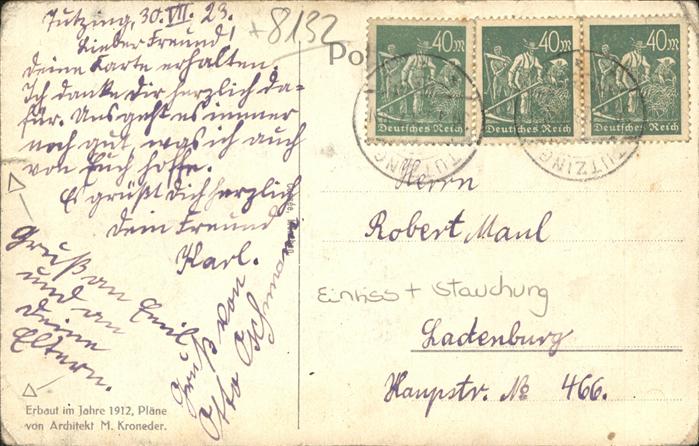 Tutzing, 30.VII.23.
Lieber Freund!
deine Karte erhalten.
Ich danke Dir herzlich da-
für. Uns geht es immer
noch gut, was ich auch
von Euch hoffe.
Es grüßt Dich herzlich
dein Freund
Karl.
Gruß an Emil
und an
deine
Eltern.
Gruß von
Otto
+8132
Po
40 M
Deutsches Reich
40 M
Deutsches Reich
40 M
Deutsches Reich
TUTZING
TUTZING
Herrn
Robert Maul
Einriss + Stauchung
Ladenburg
Haupstr. № 466.
Erbaut im Jahre 1912, Pläne
von Architekt M. Kroneder.